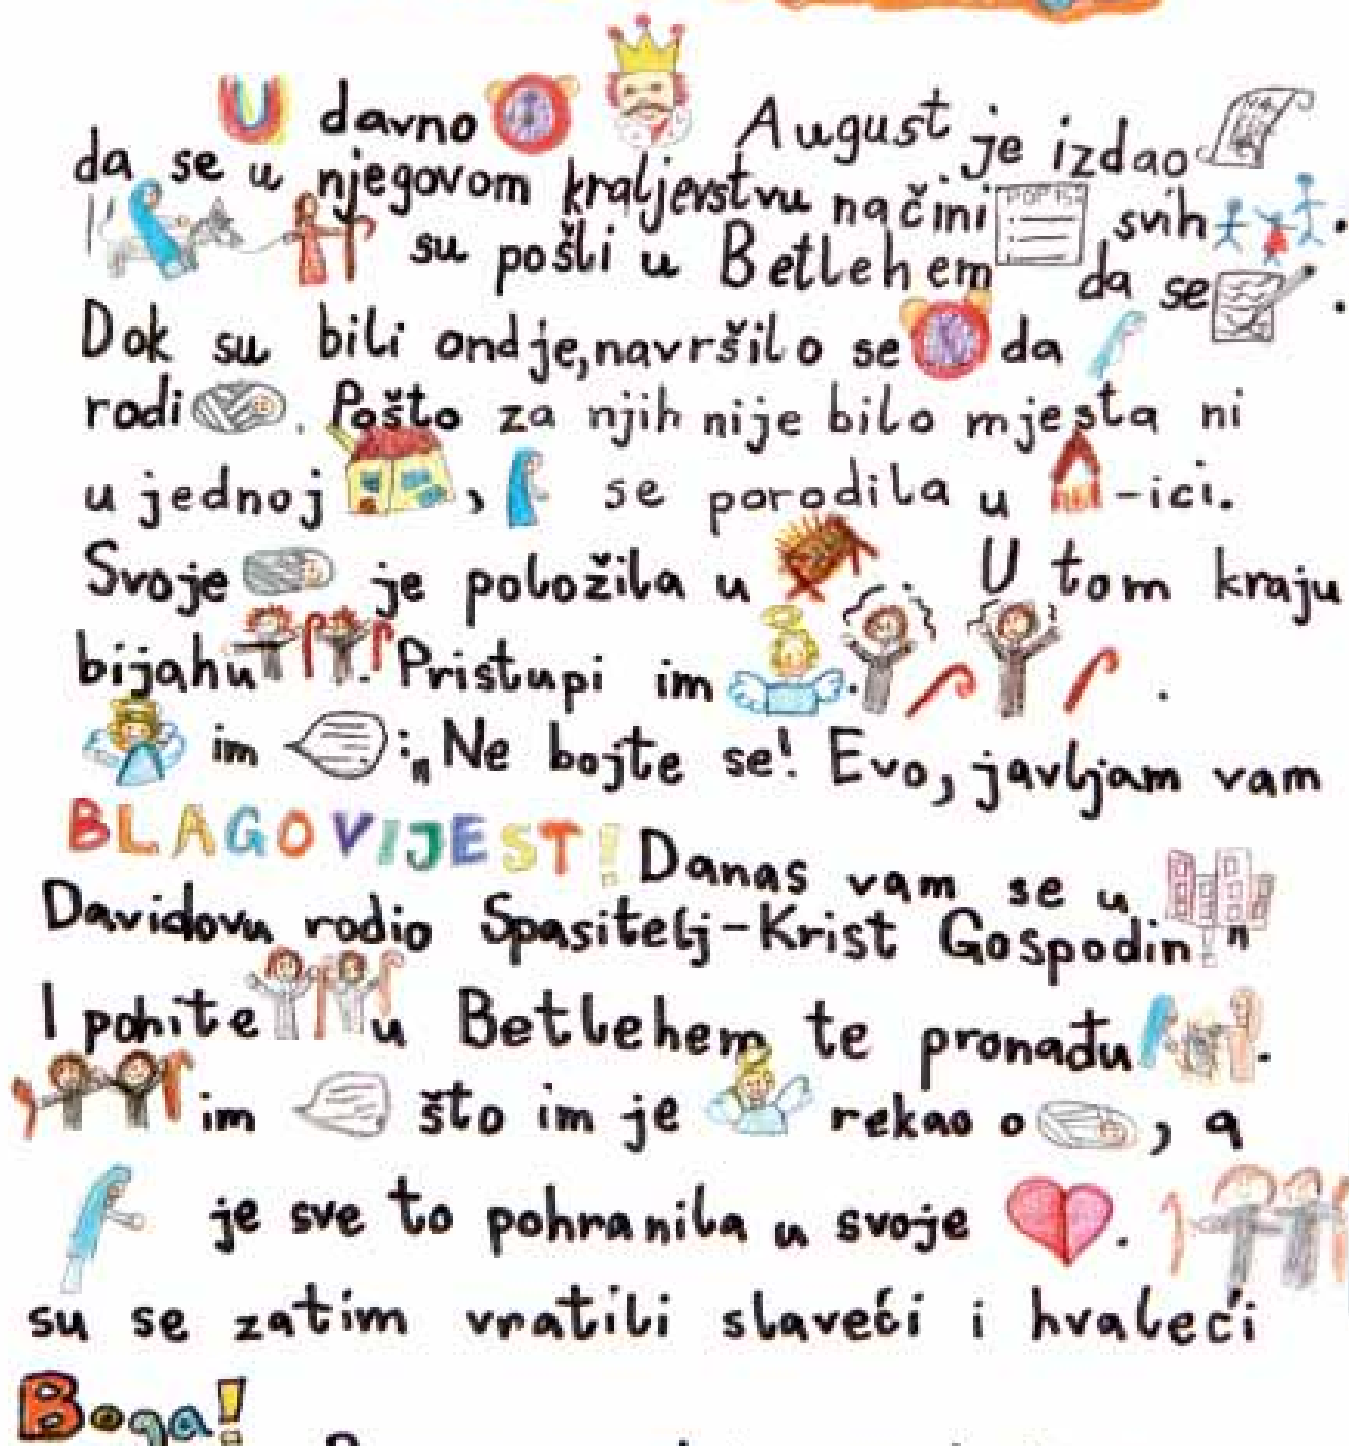 U davno August je izdao
da se u njegovom kraljevstvu načini POPIS svih .
su pošli u Betlehem da se .
Dok su bili ondje, navršilo se da
rodi . Pošto za njih nije bilo mjesta ni
u jednoj , se porodila u -ici.
Svoje je položila u U tom kraju
bijahu . Pristupi im . .
im :„Ne bojte se! Evo, javljam vam
BLAGOVIJEST! Danas vam se u
Davidovu rodio Spasitelj-Krist Gospodin!"
I pohite u Betlehem te pronađu .
im što im je rekao o , a
je sve to pohranila u svoje .
su se zatim vratili slaveći i hvaleći
Boga!